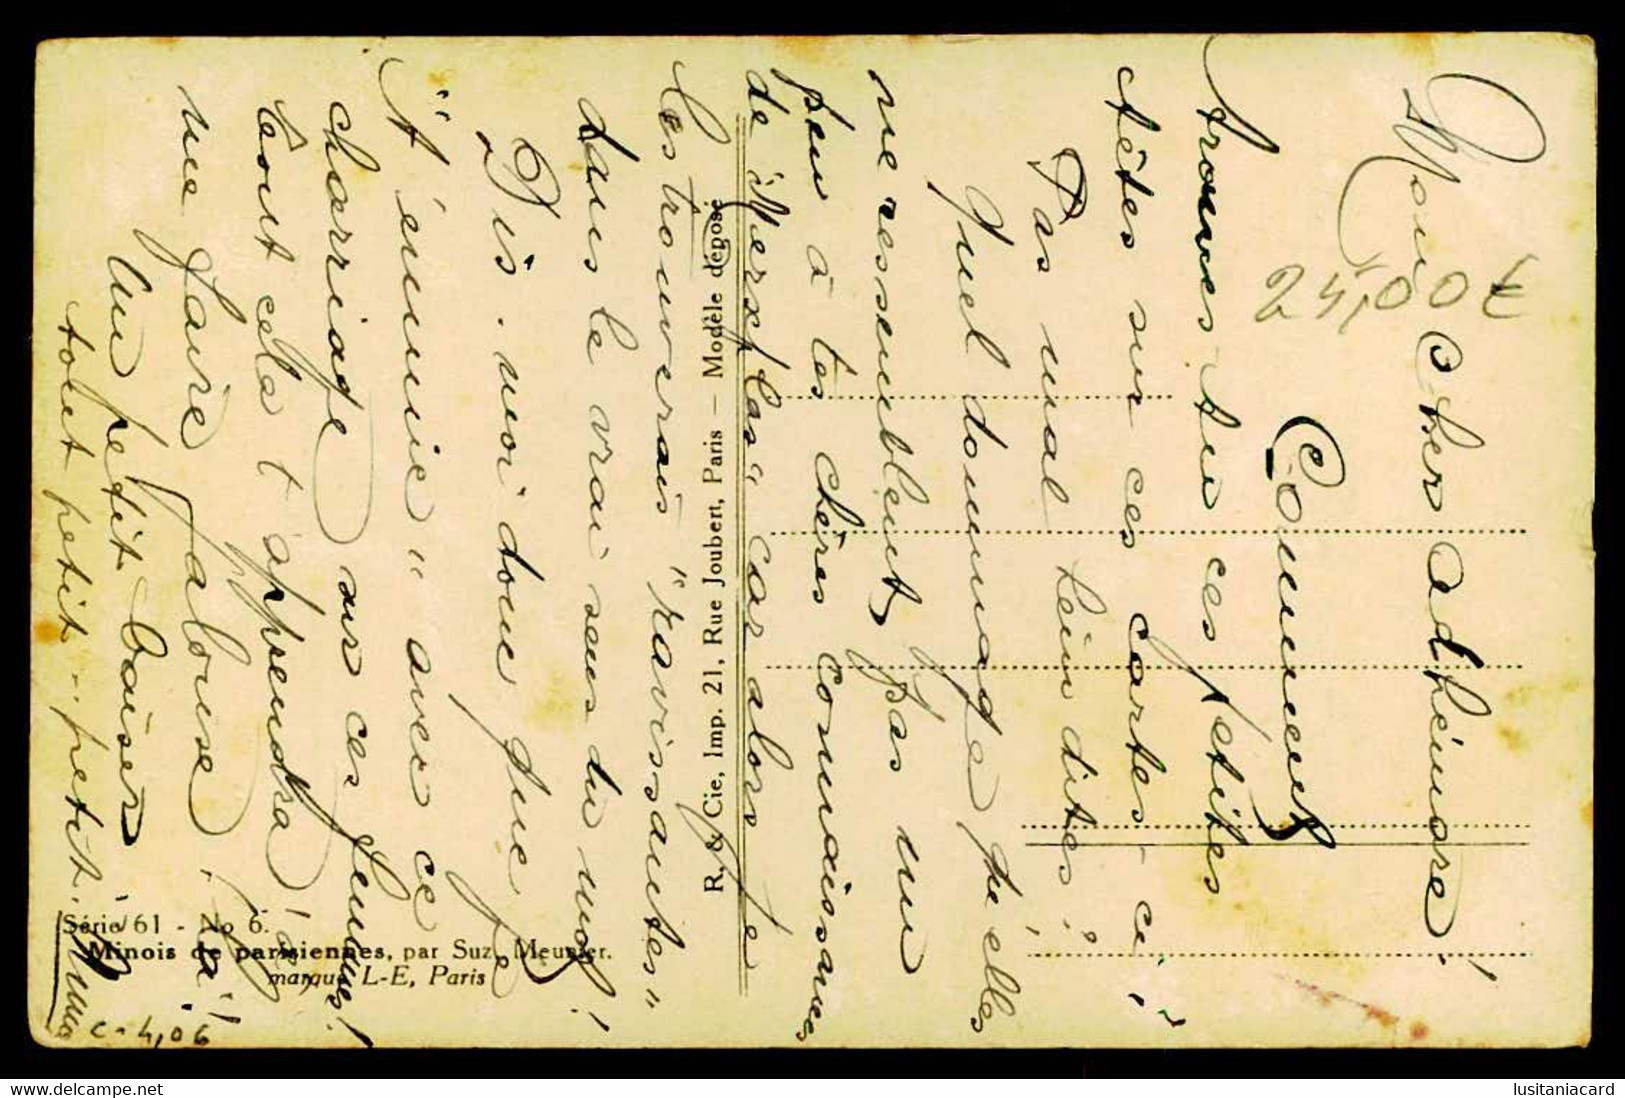 Mon cher adhémore!
Comment
trouves-tu ces petites
têtes sur ces cartes-ci?
Pas mal hein dites?
Quel dommage qu'elles
ne ressemblent pas un
peu à tes chères connaissances
de "Merxplas" car alors je
les trouverais "ravissantes"
dans le vrai sens du mot!
Dis-moi donc que je
"t'ennuie" avec ce
charriage sur ces femmes!
Tout cela t'appendra! à
me faire jalouse, na!
Un petit baiser
tout petit... petit.
24,00 €
R. & Cie, Imp. 21, Rue Joubert, Paris — Modèle déposé
Série 61 - No 6.
Minois de parisiennes, par Suz. Meunier.
marque L-E, Paris
c-4,06
delcampe.net
lusitaniacard